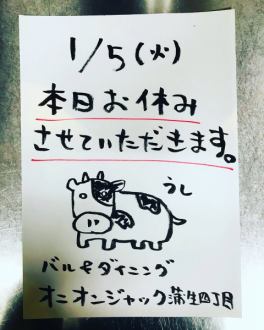 1/5(火)
本日お休み
させていただきます。
うし
バル&ダイニング
オニオンジャック蒲生四丁目